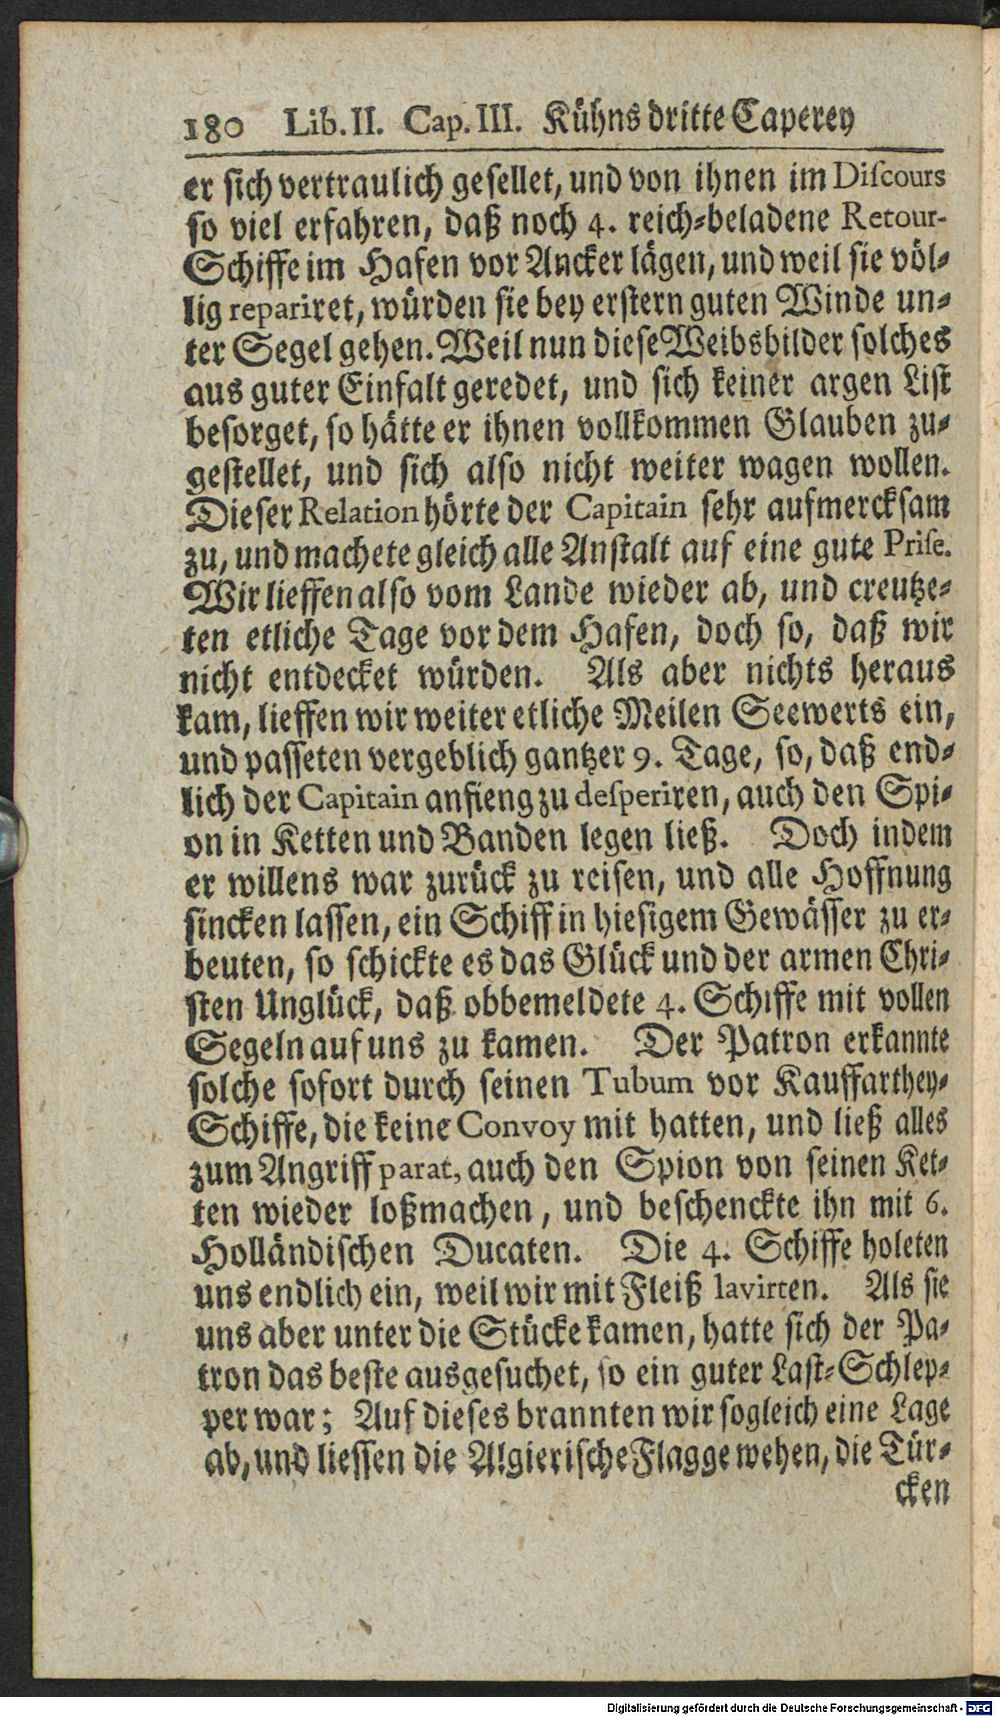 180 Lib. II. Cap. III. Kühns dritte Caperey
er sich vertraulich gesellet, und von ihnen im Discours
so viel erfahren, daß noch 4. reich-beladene Retour-
Schiffe im Hafen vor Ancker lägen, und weil sie völ-
lig repariret, würden sie bey erstern guten Winde un-
ter Segel gehen. Weil nun diese Weibsbilder solches
aus guter Einfalt geredet, und sich keiner argen List
besorget, so hätte er ihnen vollkommen Glauben zu-
gestellet, und sich also nicht weiter wagen wollen.
Dieser Relation hörte der Capitain sehr aufmercksam
zu, und machete gleich alle Anstalt auf eine gute Prise.
Wir lieffen also vom Lande wieder ab, und creutze-
ten etliche Tage vor dem Hafen, doch so, daß wir
nicht entdecket würden. Als aber nichts heraus
kam, lieffen wir weiter etliche Meilen Seewerts ein,
und passeten vergeblich gantzer 9. Tage, so, daß end-
lich der Capitain anfieng zu desperiren, auch den Spi-
on in Ketten und Banden legen ließ. Doch indem
er willens war zurück zu reisen, und alle Hoffnung
sincken lassen, ein Schiff in hiesigem Gewässer zu er-
beuten, so schickte es das Glück und der armen Chri-
sten Unglück, daß obbemeldete 4. Schiffe mit vollen
Segeln auf uns zu kamen. Der Patron erkannte
solche sofort durch seinen Tubum vor Kauffarthey-
Schiffe, die keine Convoy mit hatten, und ließ alles
zum Angriff parat, auch den Spion von seinen Ket-
ten wieder loßmachen, und beschenckte ihn mit 6.
Holländischen Ducaten. Die 4. Schiffe holeten
uns endlich ein, weil wir mit Fleiß lavirten. Als sie
uns aber unter die Stücke kamen, hatte sich der Pa-
tron das beste ausgesuchet, so ein guter Last-Schlep-
per war; Auf dieses brannten wir sogleich eine Lage
ab, und liessen die Algierische Flagge wehen, die Tür-
cken
Digitalisierung gefördert durch die Deutsche Forschungsgemeinschaft - DFG